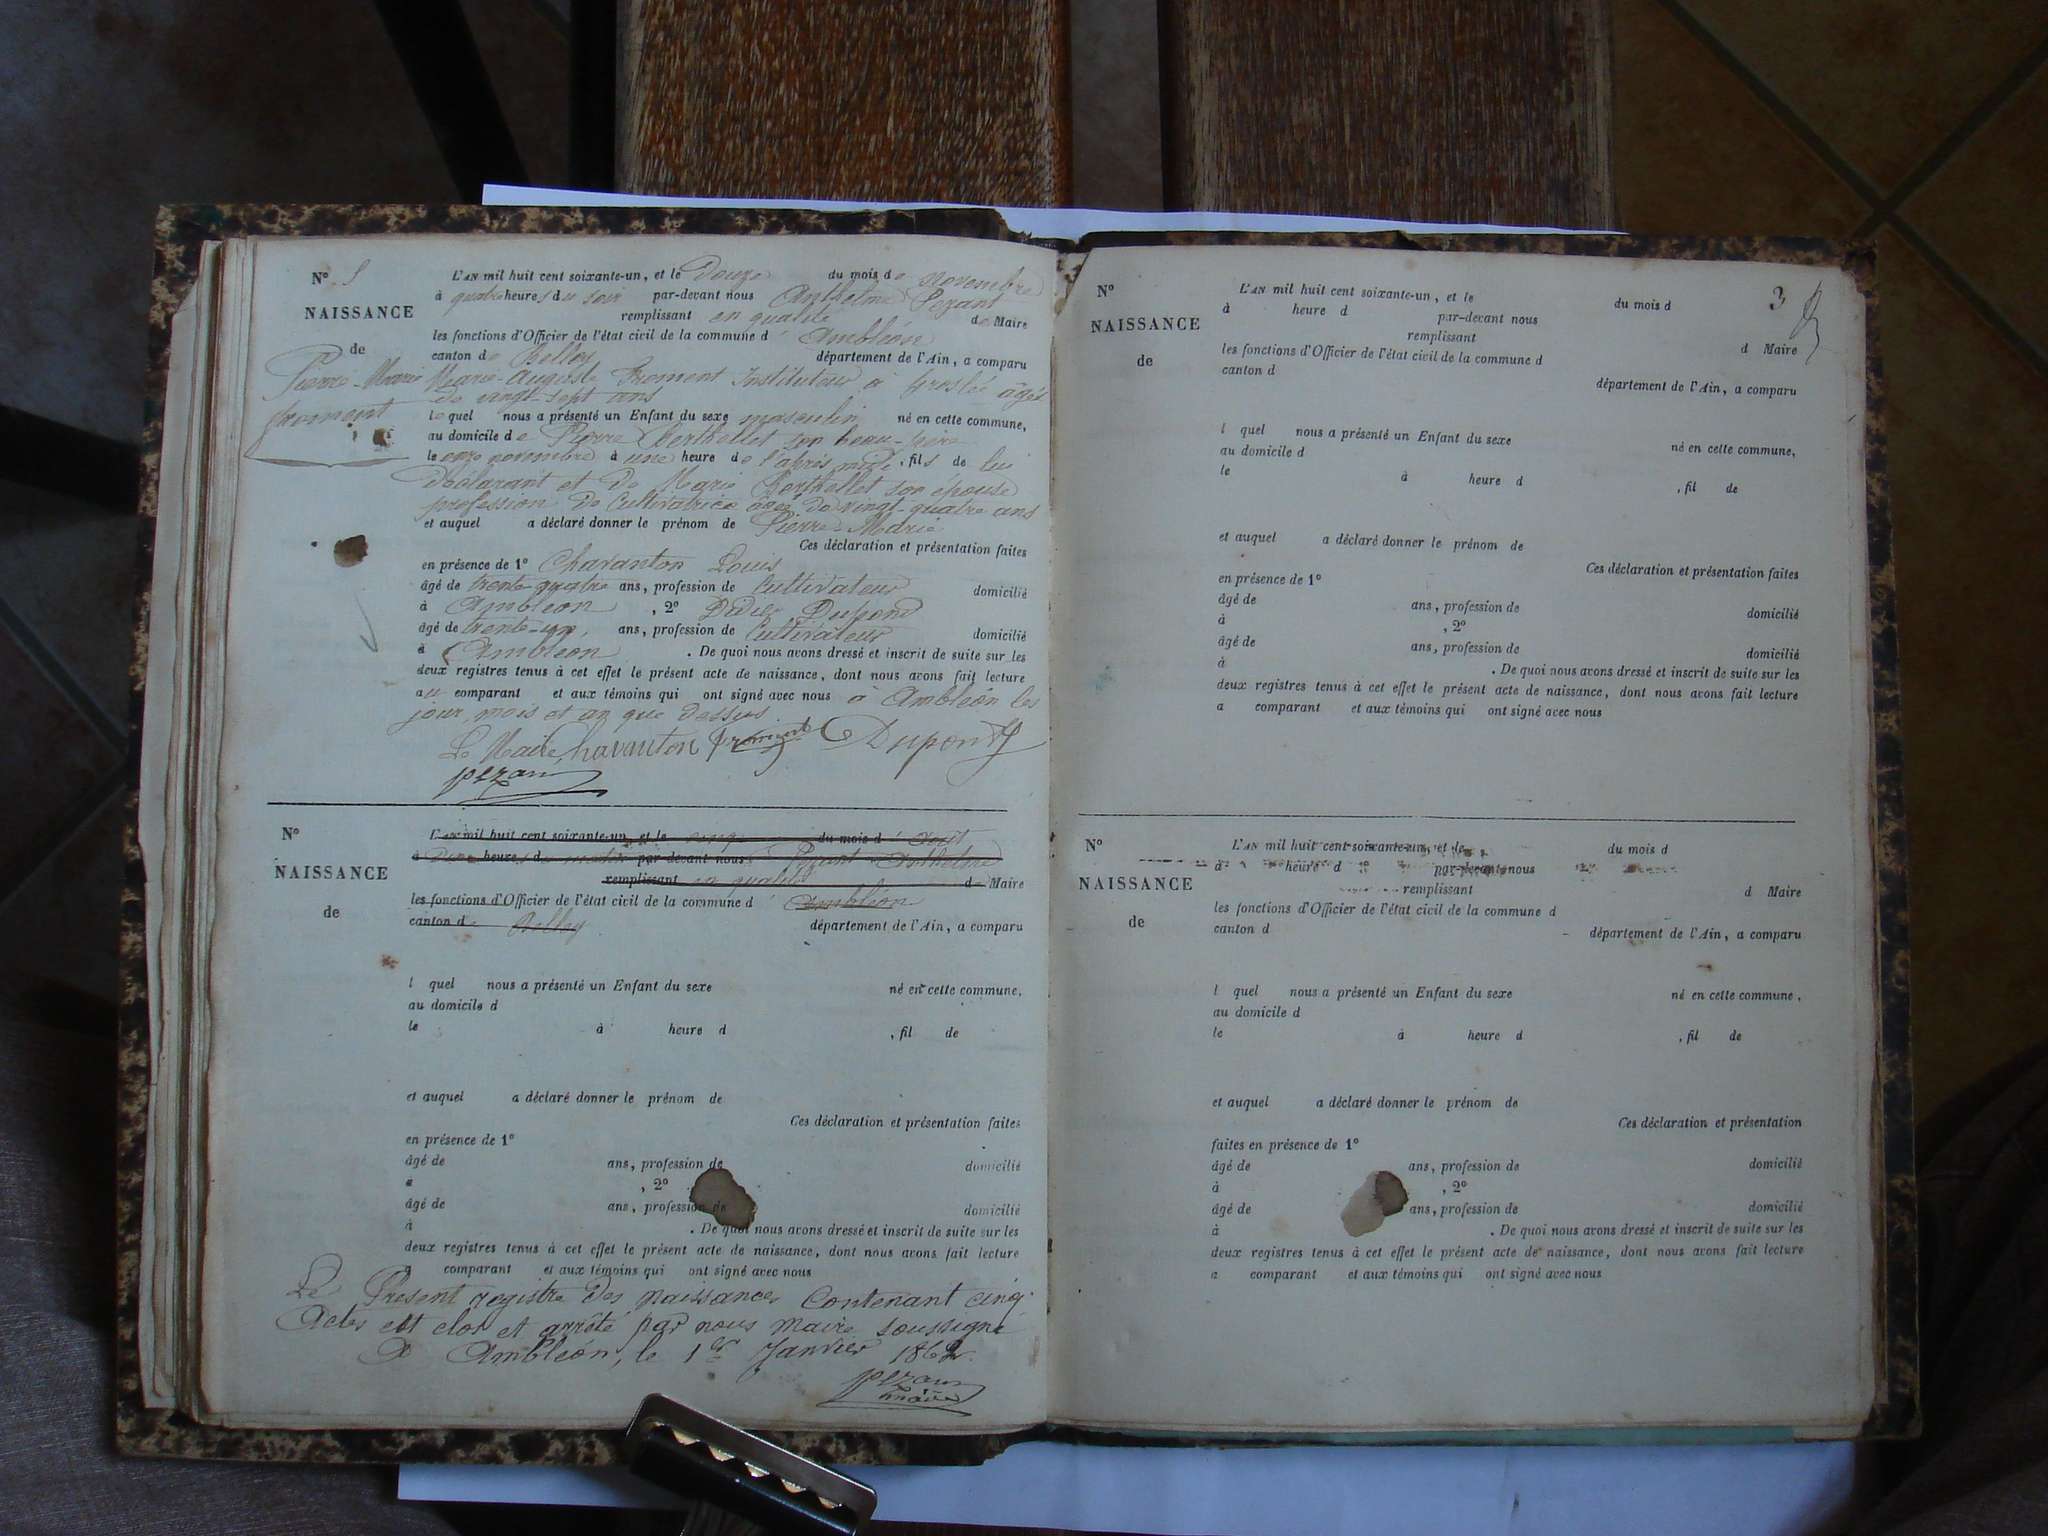 N° 5
L'AN mil huit cent soixante-un, et le Douze du mois de novembre
NAISSANCE
à quatre heures du soir par-devant nous Anthelme Pezant
remplissant en qualité de Maire
de
les fonctions d'Officier de l'état civil de la commune d' Ambléon
canton de Belley département de l'Ain, a comparu
Pierre-Marie
Marie-Auguste Froment Instituteur à Groslée âgé
froment
de vingt-sept ans
lequel nous a présenté un Enfant du sexe masculin né en cette commune,
au domicile de Pierre Berthellet son beau-père
le onze novembre à une heure de l'après midi, fils de lui
déclarant et de Marie Berthellet son épouse
profession de Cultivatrice âgée de vingt-quatre ans
et auquel a déclaré donner le prénom de Pierre-Marie
Ces déclaration et présentation faites
en présence de 1° Chavanton Louis
âgé de trente-quatre ans, profession de Cultivateur domicilié
à Ambléon, 2° Didier Dupond
âgé de trente-un, ans, profession de Cultivateur domicilié
à Ambléon. De quoi nous avons dressé et inscrit de suite sur les
deux registres tenus à cet effet le présent acte de naissance, dont nous avons fait lecture
au comparant et aux témoins qui ont signé avec nous à Ambléon les
jour, mois et an que dessus
Le Maire, havanton froment Dupond
pezan
N°
L'AN mil huit cent soixante-un, et le cinq du mois d' août
NAISSANCE
à Dix heures du matin par-devant nous Pezant Anthelme
remplissant en qualité de Maire
de
les fonctions d'Officier de l'état civil de la commune d' Ambléon
canton de Belley département de l'Ain, a comparu
l quel nous a présenté un Enfant du sexe né en cette commune,
au domicile d
le à heure d , fil de
et auquel a déclaré donner le prénom de
Ces déclaration et présentation faites
en présence de 1°
âgé de ans, profession de domicilié
à , 2°
âgé de ans, profession de domicilié
à . De quoi nous avons dressé et inscrit de suite sur les
deux registres tenus à cet effet le présent acte de naissance, dont nous avons fait lecture
a comparant et aux témoins qui ont signé avec nous
Le Present registre des naissances Contenant cinq
Actes est clos et arrêté par nous maire soussigné
A Ambléon, le 1er Janvier 1862.
pezan
maire
3
N°
L'AN mil huit cent soixante-un, et le du mois d
NAISSANCE
à heure d par-devant nous
remplissant d Maire
de
les fonctions d'Officier de l'état civil de la commune d
canton d département de l'Ain, a comparu
l quel nous a présenté un Enfant du sexe né en cette commune,
au domicile d
le à heure d , fil de
et auquel a déclaré donner le prénom de
Ces déclaration et présentation faites
en présence de 1°
âgé de ans, profession de domicilié
à , 2°
âgé de ans, profession de domicilié
à . De quoi nous avons dressé et inscrit de suite sur les
deux registres tenus à cet effet le présent acte de naissance, dont nous avons fait lecture
a comparant et aux témoins qui ont signé avec nous
N°
L'AN mil huit cent soixante-un, et le du mois d
NAISSANCE
à heure d par-devant nous
remplissant d Maire
de
les fonctions d'Officier de l'état civil de la commune d
canton d département de l'Ain, a comparu
l quel nous a présenté un Enfant du sexe né en cette commune,
au domicile d
le à heure d , fil de
et auquel a déclaré donner le prénom de
Ces déclaration et présentation
faites en présence de 1°
âgé de ans, profession de domicilié
à , 2°
âgé de ans, profession de domicilié
à . De quoi nous avons dressé et inscrit de suite sur les
deux registres tenus à cet effet le présent acte de naissance, dont nous avons fait lecture
a comparant et aux témoins qui ont signé avec nous